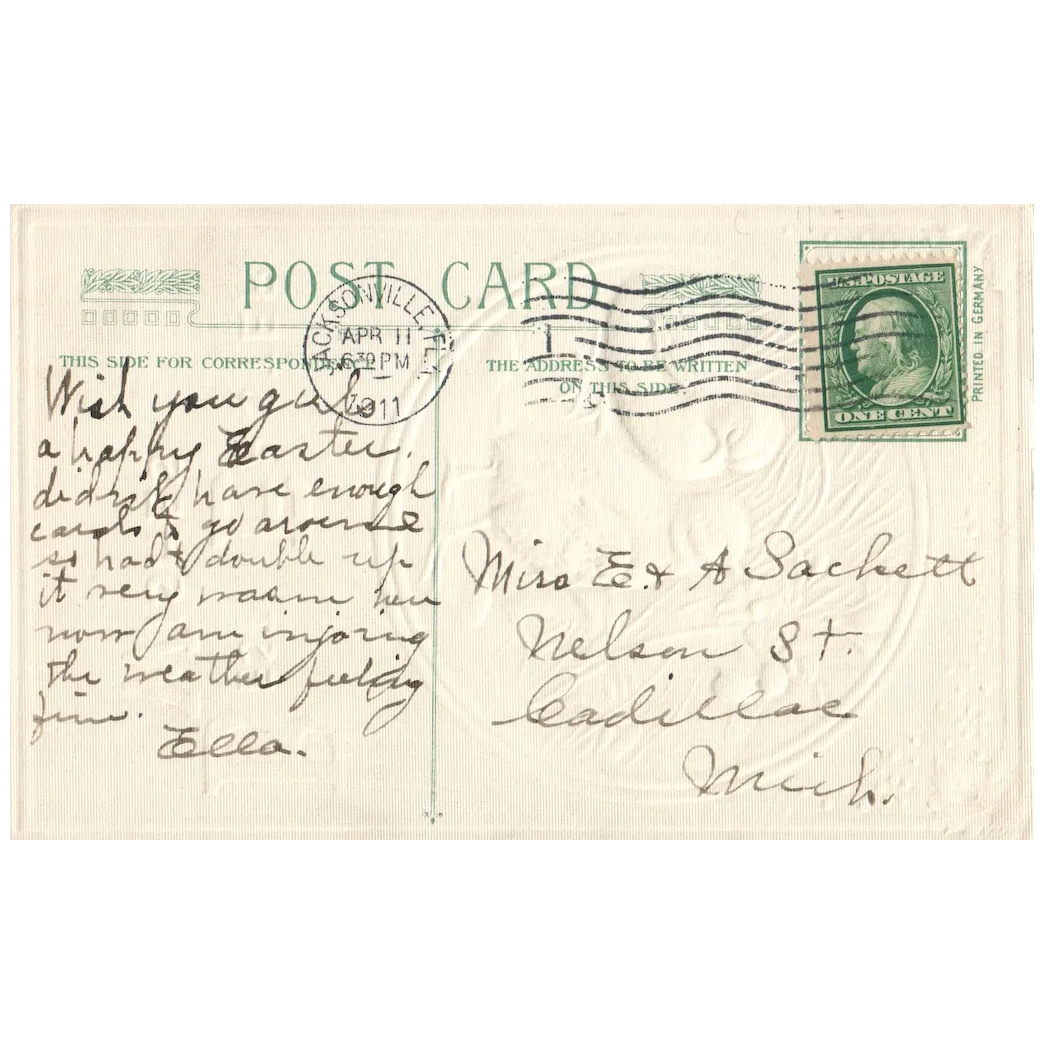 POST CARD
JACKSONVILLE, FLA.
APR 11
630 PM
1911
1
U.S. POSTAGE
ONE CENT
PRINTED IN GERMANY
THIS SIDE FOR CORRESPONDENCE
THE ADDRESS TO BE WRITTEN
ON THIS SIDE.
Wish you girls
a happy Easter.
didn't have enough
cards to go around
so had to double up
it very warm here
now am injoring
the weather feeling
fine.
Ella.
Miss E & A Sackett
Nelson St.
Cadillac
Mich.